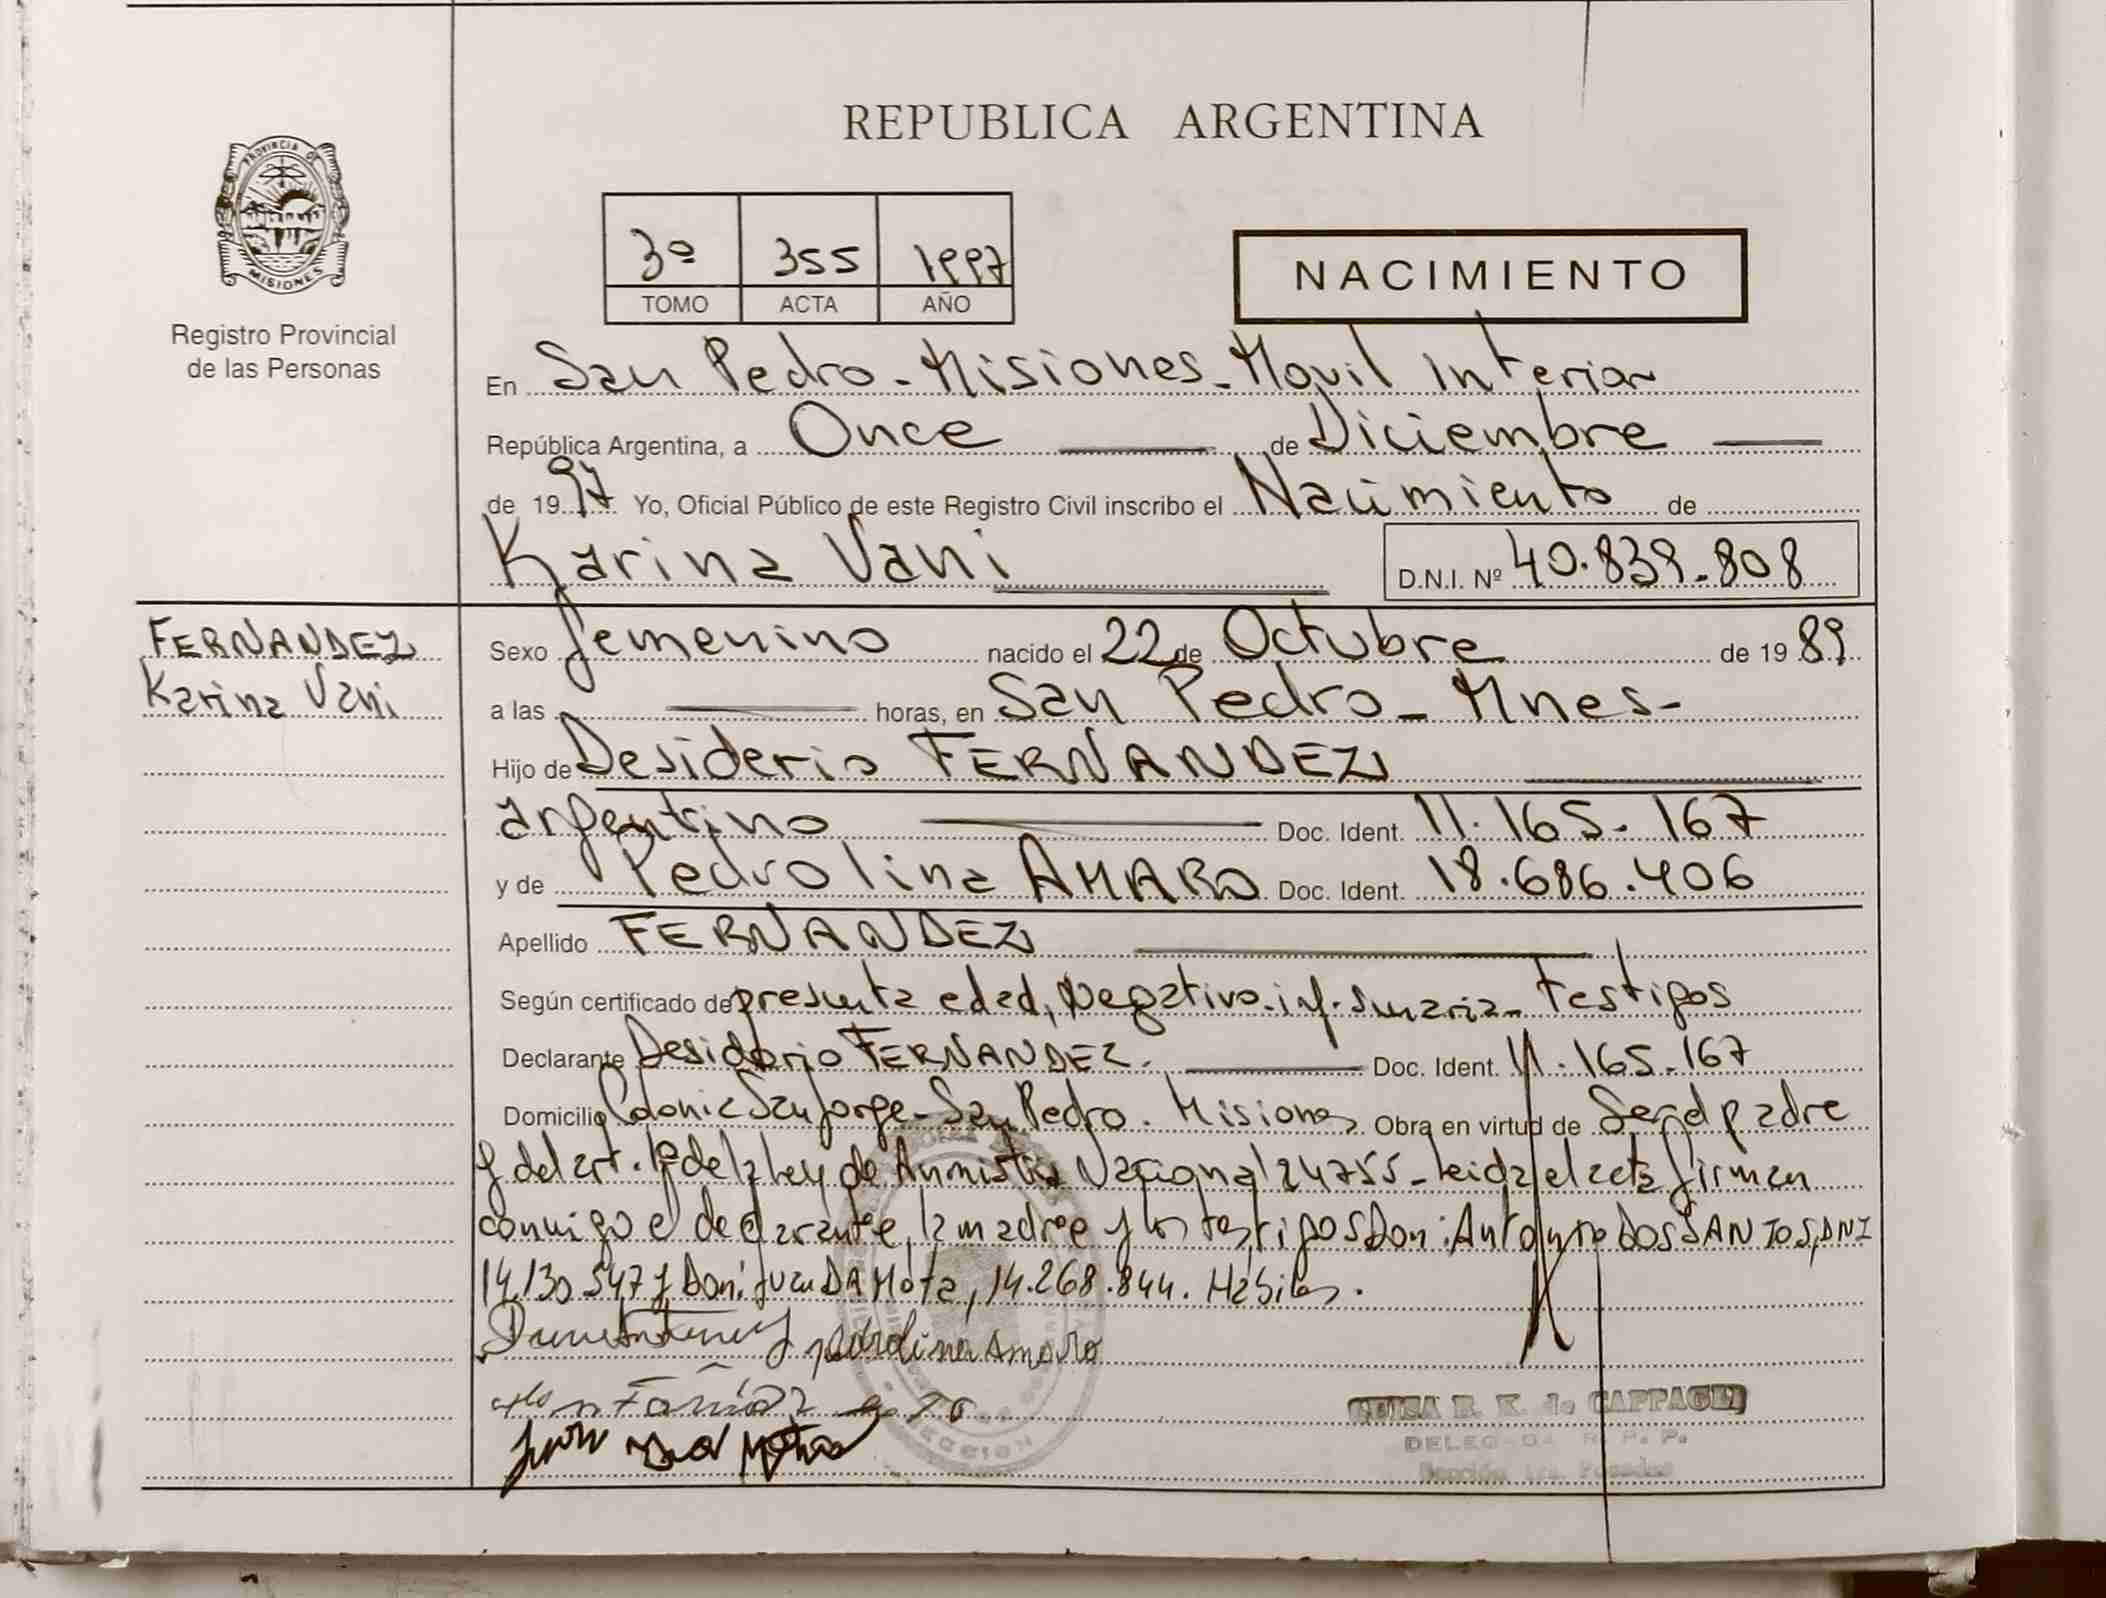 REPUBLICA ARGENTINA
PROVINCIA DE
MISIONES
Registro Provincial
de las Personas
3º 355 1997
TOMO ACTA AÑO
NACIMIENTO
En San Pedro - Misiones - Movil Interior
República Argentina, a Once de Diciembre
de 1997 Yo, Oficial Público de este Registro Civil inscribo el Nacimiento de
Karina Vani D.N.I. Nº 40.839.808
FERNANDEZ
Karina Vani
Sexo femenino nacido el 22 de Octubre de 1989
a las horas, en San Pedro - Mnes -
Hijo de Desiderio FERNANDEZ
argentino Doc. Ident. 11.165.167
y de Pedrolina AMARO Doc. Ident. 18.686.406
Apellido FERNANDEZ
Según certificado de presunta edad, Negativo. inf. sumaria - Testigos
Declarante Desiderio FERNANDEZ. Doc. Ident. 11.165.167
Domicilio Colonia San Jorge - San Pedro. Misiones Obra en virtud de Ser el padre
y del art. 1º de la ley de Amnistia Nacional 24755 - leida el acta firman
conmigo el declarante, la madre y los testigos Don: DOS SANTOS, DNI
14.130.547 y Don: Juan DA Mota, 14.268.844. Habiles.
pedrolina Amaro
de CAPPAGLI
DELEG R. P. P.
Sección 1ra. Posadas